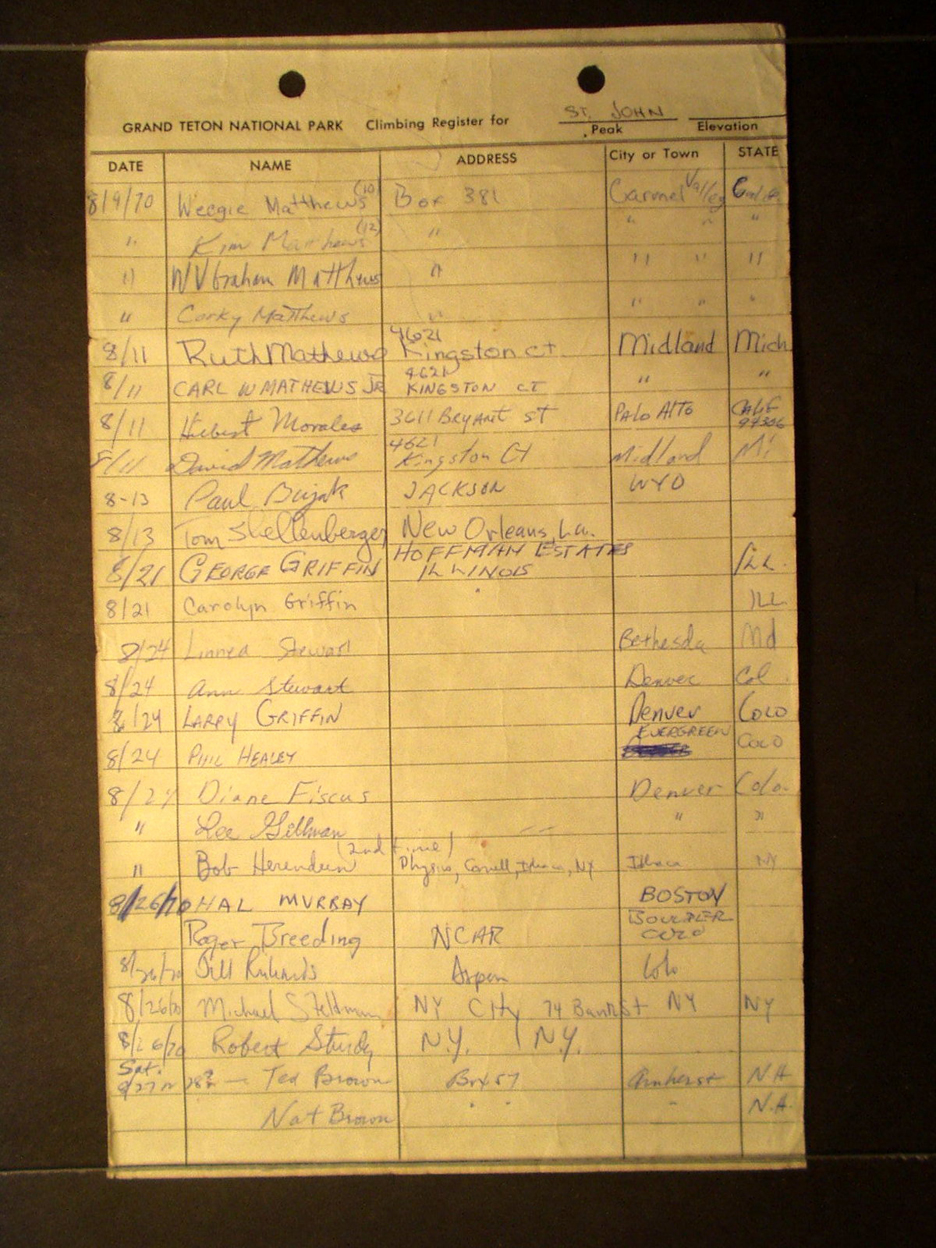 ST. JOHN
GRAND TETON NATIONAL PARK Climbing Register for Peak Elevation
DATE NAME ADDRESS City or Town STATE
8/9/70 Weegie Matthews (10) Box 381 Carmel Valley Calif
" Kim Matthews (12) " " " "
" W V Graham Matthews " " " "
" Corky Matthews " " " "
8/11 Ruth Mathews 4621 Kingston Ct Midland Mich
8/11 CARL W MATHEWS JR 4621 KINGSTON CT " "
8/11 Hubert Morales 3611 BRYANT ST PALO ALTO CALIF 94306
8/11 David Mathews 4621 Kingston Ct Midland Mi
8-13 Paul JACKSON WYO
8/13 Tom Shellenberger New Orleans, La.
8/21 GEORGE GRIFFIN HOFFMAN ESTATES ILLINOIS ILL.
8/21 Carolyn Griffin " ILL.
8/24 Linnea Stewart Bethesda Md
8/24 Ann Stewart Denver Col
8/24 LARRY GRIFFIN Denver COLO
8/24 PHIL HEALEY EVERGREEN COLO
8/27 Diane Fiscus Denver Colo.
" Lee Gellman " "
" Bob Herendeen (2nd time) Physics, Cornell, Ithaca, NY Ithaca NY
8/26/70 HAL MURRAY BOSTON
Roger Breeding NCAR BOULDER COLO
8/26/70 Bill Richards Aspen Colo
8/26/70 Michael NY City 74 Bank St NY NY
8/26/70 Robert Sturdy N.Y. N.Y.
Sat. Ted Brown Box 57 Amherst N.H.
Nat Brown " " " N.H.